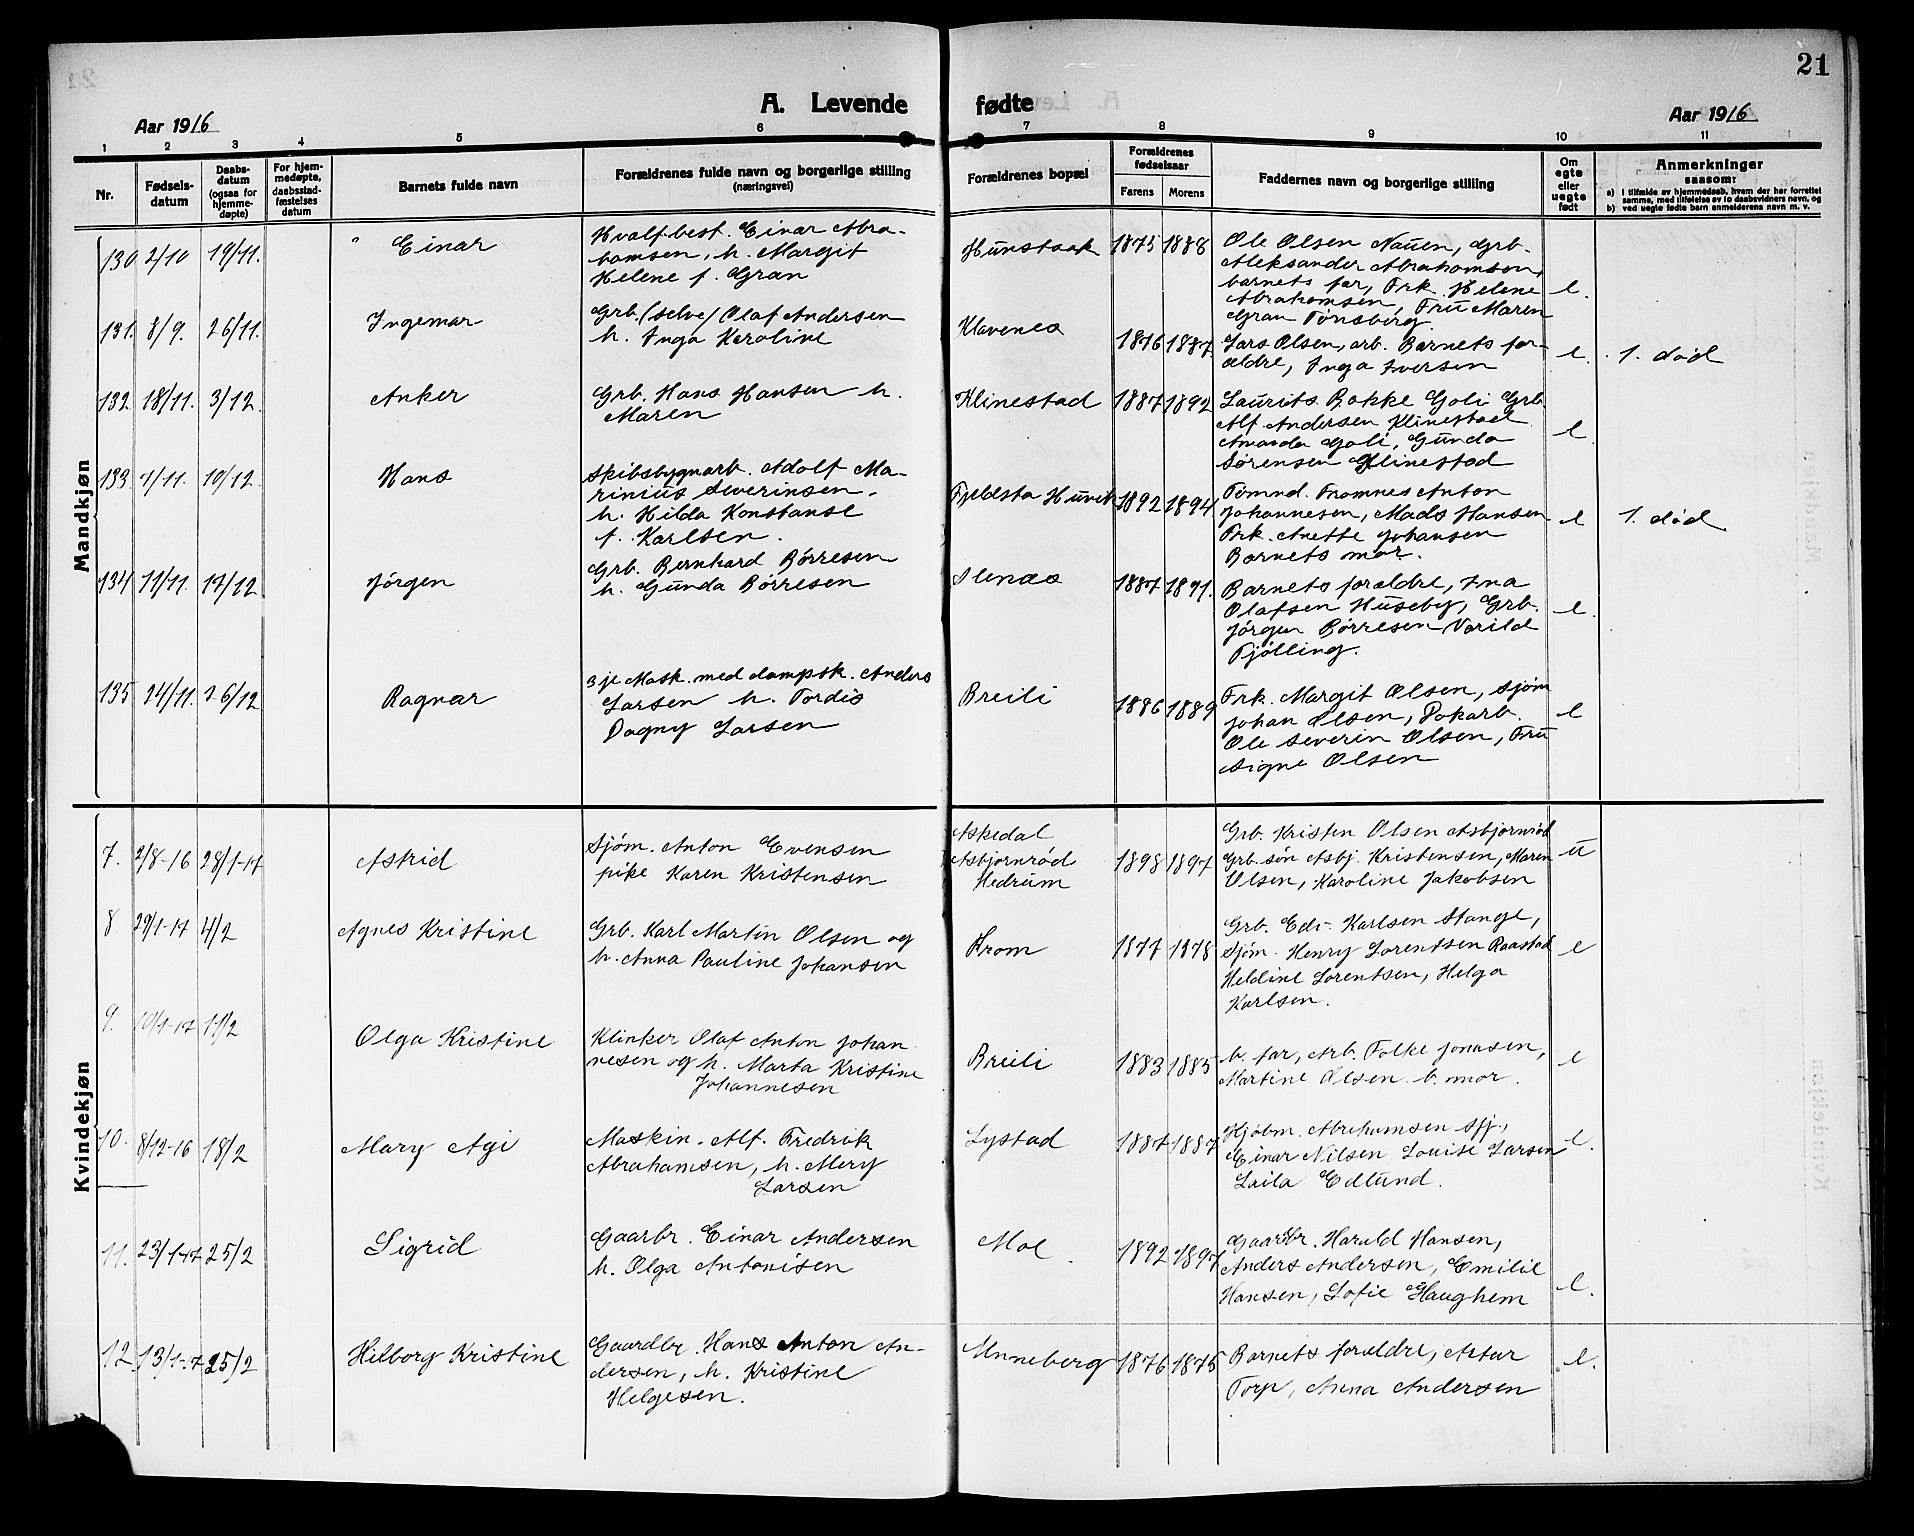 21
A. Levende fødte
Aar 1916
Aar 1916
1 2 3 4 5 6 7 8 9 10 11
Nr.
Fødsels-
datum
Daabs-
datum
(ogsaa for
hjemme-
døpte)
For hjem-
medøpte,
daabsstad-
fæstelses
datum
Barnets fulde navn
Forældrenes fulde navn og borgerlige stilling
(næringsvei)
Forældrenes bopæl
Forældrenes
fødselsaar
Farens
Morens
Faddernes navn og borgerlige stilling
Om
egte
eller
uegte
født
Anmerkninger
saasom:
a) I tilfælde av hjemmedaab, hvem der har forrettet
samme, med tilføielse av to daabsvidners navn, og
b) ved uegte fødte barn anmelderens navn m. v.
Mandkjøn
130 2/10 19/11.
Einar
Hvalfbest. Einar Abra-
hamsen, h. Margit
Helene f. Gran
Hunstsak
1875 1888
Ole Olsen Nauen, Grb.
Aleksander Abrahamson,
barnets far, Frk. Helene
Abrahamsen, Fru Maren
Gran Tønsberg.
e.
131. 8/9. 26/11.
Ingemar
Grb. (selve) Olaf Andersen
h. Inga Karoline
Klavenes
1876 1887
Lars Olsen, arb. Barnets for-
ældre, Inga Iversen
e.
1. død
132 18/11. 3/12.
Anker
Grb. Hans Hansen h.
Maren
Klinestad
1887 1892
Laurits Bakke Goli Grb.
Alf. Andersen Klinestad
Amanda Goli, Gunda
Sørensen Klinestad
e.
133 1/11. 10/12.
Hans
Skibsbygnarb. Adolf Ma-
rinius Severinsen.
h. Hilda Konstanse
f. Karlsen.
Fjeldsta Hunvik
1892 1894
Tømnd. Tromnes Anton
Johannesen, Mads Hansen
Frk. Anette Johansen
Barnets mor.
e
1. død
134 11/11. 17/12
Jørgen
Grb. Bernhard Børresen
h. Gunda Børresen
Stenas
1887 1891.
Barnets forældre, Ina
Olafsen Huseby, Grb.
Jørgen Børresen Varild
Tjølling.
e.
135 24/11. 26/12
Ragnar
3je Mask. med dampsk. Anders
Larsen h. Tordis
Dagny Larsen
Breili
1886 1889
Frk. Margit Olsen, Sjøm
Johan Olsen, Dokarb.
Ole Severin Olsen, Fru
Signe Olsen
e
Kvindekjøn
7. 2/8-16 28/1-17
Astrid
Sjøm. Anton Evensen
pike Karen Kristensen
Askedal
Asbjørnrød
Hedrum
1898 1897
Grb. Kristen Olsen Asbjørnrød
Grb. søn Asbj. Kristensen, Maren
Olsen, Karoline Jakobsen
u
8. 29/1-17 4/2
Agnes Kristine
Grb. Karl Martin Olsen og
h. Anna Pauline Johansen
Krom
1877 1878
Grb. Edv. Karlsen Stange,
Sjøm. Henry Lorentsen Raastad
Heldine Lorentsen, Helga
Karlsen.
e
9. 10/1-17 11/2
Olga Kristine
Klinker Olaf Anton Johan-
nesen og h. Marta Kristine
Johannesen
Breili
1883 1885
b. far, Arb. Folke Jonasen,
Martine Olsen. b. mor.
e
10. 8/12-16 18/2
Mary Agi
Maskin. Alf. Fredrik
Abrahamsen, h. Mery
Larsen
Lystad
1887 1887
Hjøbm. Abrahamsen Sfj.,
Einar Nilsen, Louise Larsen
Laila Edlund.
e.
11. 23/1-17 25/2
Sigrid
Gaarbr. Einar Andersen
h. Olga Antonisen
Moe
1892 1897
Gaardbr. Harald Hansen,
Anders Andersen, Emilie
Hansen, Sofie Haughem
e.
12 13/1-17 25/2
Hilborg Kristine
Gaardbr. Hans Anton An-
dersen, h. Kristine
Helgesen.
Unneberg
1876 1875
Barnets forældre, Artur
Torp, Anna Andersen
e.